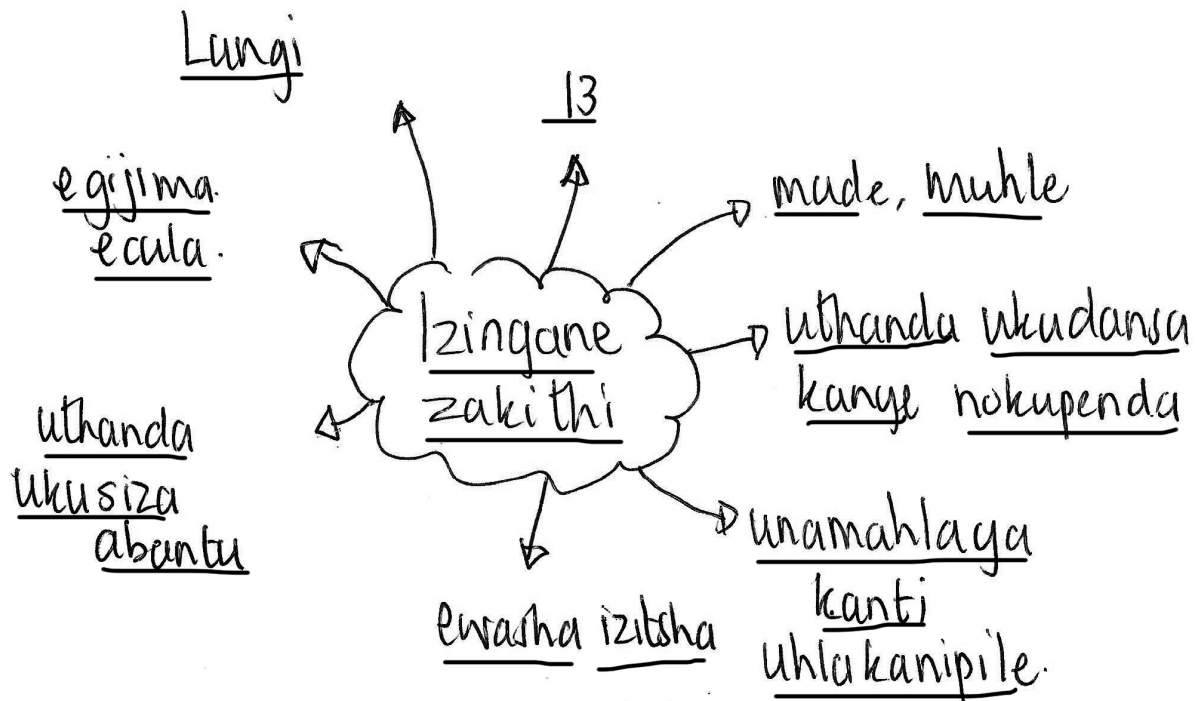 Lungi
13
egijima.
ecula.
mude, muhle
Izingane
zakithi
uthanda ukudansa
kanye nokupenda
uthanda
ukusiza
abantu
unamahlaya
kanti
uhlakanipile.
ewasha izitsha